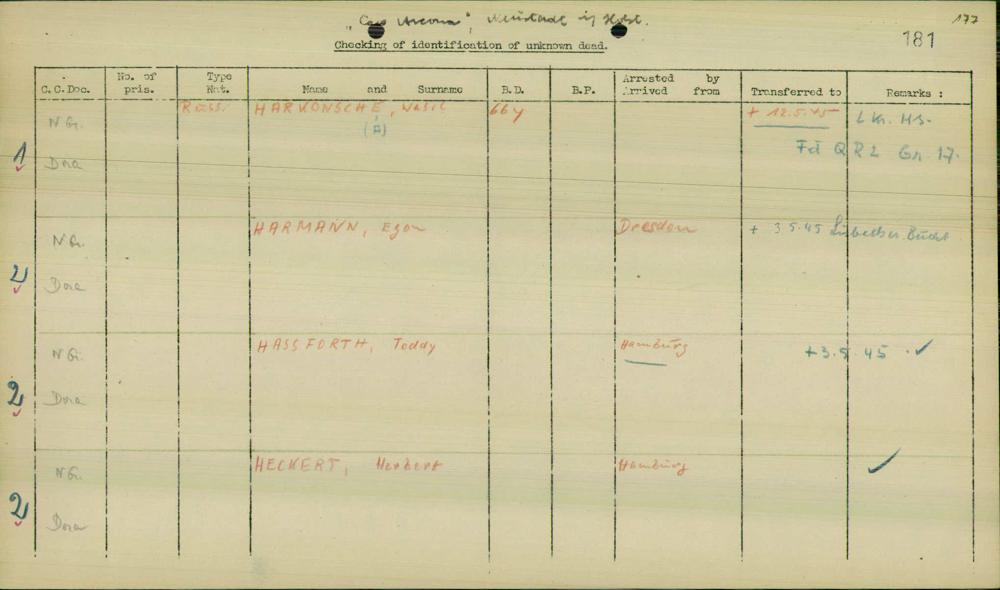 "Cap Arcona", Neustadt i/ Holst.
177
181
Checking of identification of unknown dead.
C.C.Doc. No. of pris. Type Nat. Name and Surname B.D. B.P. Arrested by Arrived from Transferred to Remarks :
N Gr. Russ. HARKONSCHE, Wasil 66 y + 12.5.45 L Kr. Hs.
(A)
1 Dora Fd QRL Gr. 17.
N Gr. HARMANN, Egon Dresden + 3.5.45 Lübecker Bucht
2 Dora
N Gr. HASSFORTH, Teddy Hamburg +3.5.45 ✓
2 Dora
N Gr. HECKERT, Herbert Hamburg ✓
2 Dora